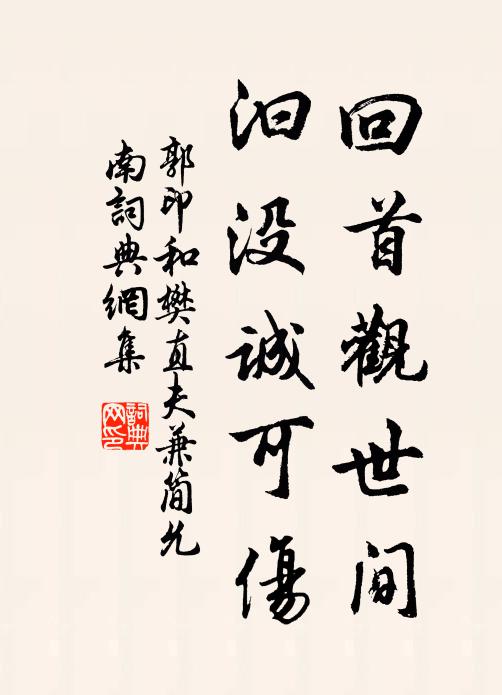 回首觀世間
汩没誠可傷
郭印和樊直夫兼简允
南詞典網集
詞典网印